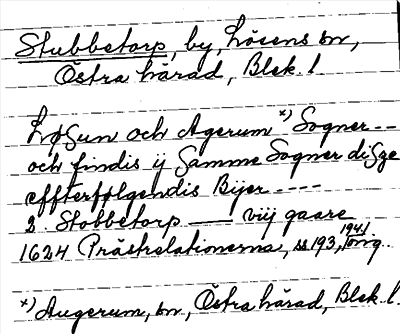 Stubbetorp, by, Lösens sn,
Östra härad, Blek. l.
Løsun och Agerum *) Sogner - -
och findis ij Samme Sogner disze
effterfølgendis Bijer - - - -
2. Stobbetorp —— viij gaare
1624 Prästrelationerna, ss 193, 1941 öng.
*) Augerum, sn, Östra härad, Blek. l.